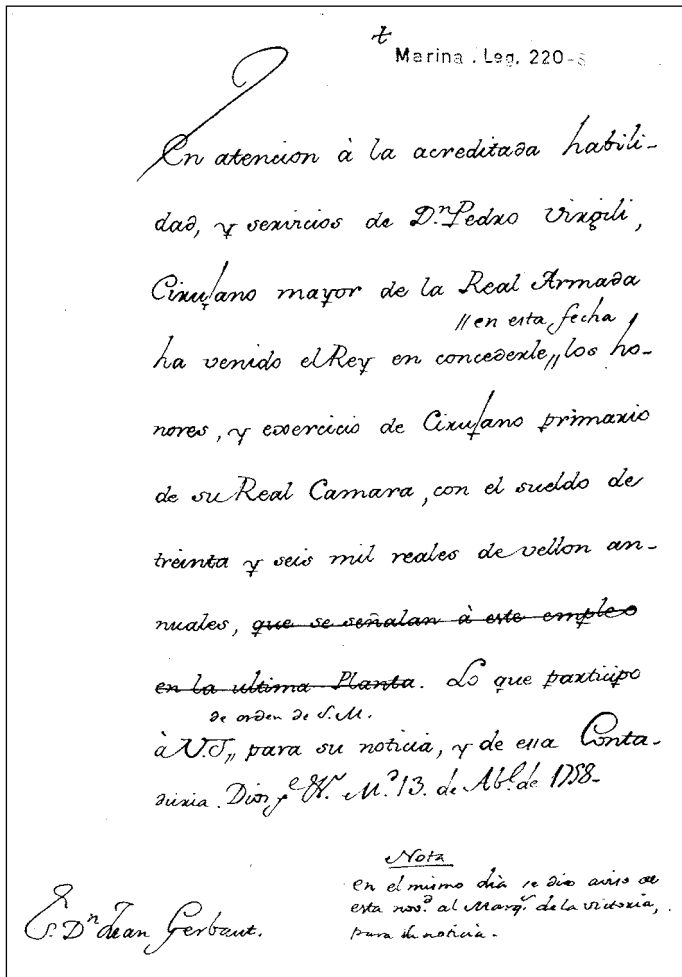 +
Marina . Leg. 220-
En atencion à la acreditada habili-
dad, y servicios de D.ⁿ Pedro Virgili,
Cirujano mayor de la Real Armada
// en esta fecha
ha venido el Rey en concederle // los ho-
nores, y exercicio de Cirujano primario
de su Real Camara, con el sueldo de
treinta y seis mil reales de vellon an-
nuales, que se señalan à este empleo
en la ultima Planta. Lo que participo
de orden de S.M.
à V.S // para su noticia, y de essa Conta-
duria. Dios g.^e M.^d 13. de Ab.^l de 1758-
Nota
en el mismo dia se dio aviso de
esta nov.^d al Marq.^s de la victoria,
para su noticia.-
S. D.ⁿ Juan Gerbaut.